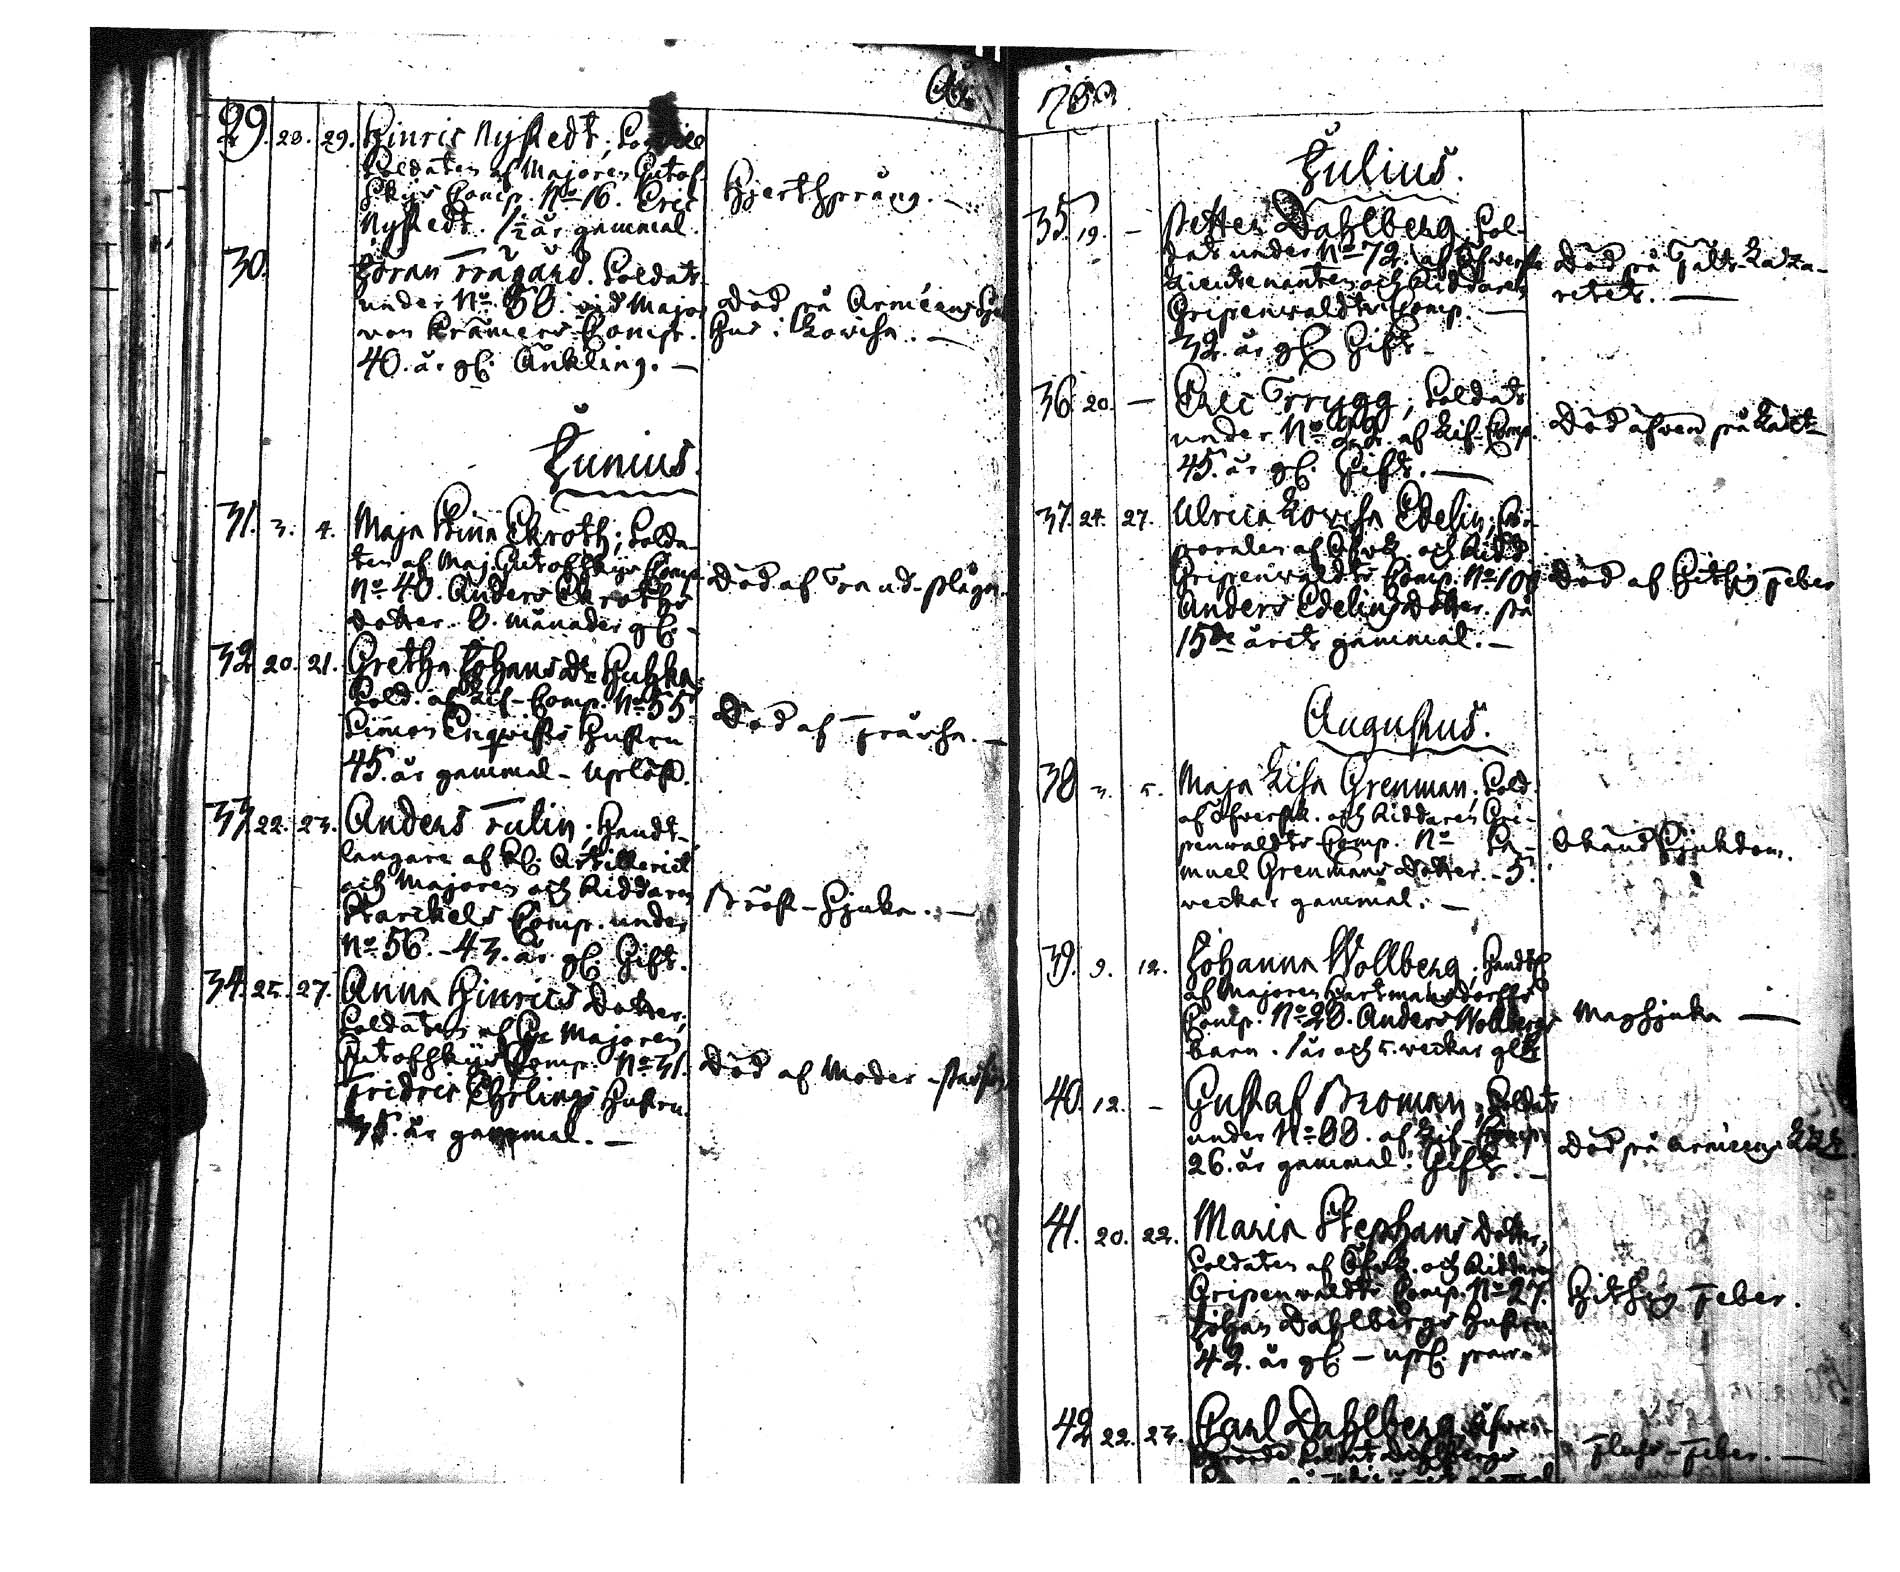 29. 28. 29. Hinric Nystedt;
Soldaten af Majoren Gutof-
skys Comp. No 16. Eric
Nystedt. 1½ år gammal.
Hjertsprång.
30. Jöran Trägård. Soldat
under No. 58. vid Major
von Krämers Comp.
40. år gl. Änkling. —
Död på Arméens
Hus i Lovisa. —
Junius.
31. 3. 4. Maja Stina Ekroth; Solda-
ten af Maj. Gutofskys Comp.
No 40. Anders Ekroths
Dotter. 8. månader gl. –
Död af
32 20. 21. Gretha Johans Dr
Sold. af Lif-Comp. No 55.
Simon Enqvists Hustru
45. år gammal –
Död af Fråssa. —
33 22. 23. Anders Tulin; Handt-
langare af Kl. Artilleriet
och Majoren och Riddaren
Comp. under
No 56. – 43. år gl. Gift.
Bröst-Sjuka. —
34. 25. 27. Anna Hinrics Dotter;
Soldaten af Majoren
Gutofskys Comp. No 31.
Fridric Ehrlings Hustru.
35. år gammal. —
Död af Moder-passion
Julius.
35. 19. – Petter Dahlberg. Sol-
dat under No 72. af Öfverste
Lieutenanten och Riddaren
Gripenwaldts Comp. —
32. år gl. Gift –
Död på Fält-Laza-
rettet. —
36 20. — Eric Trygg; Soldat
under No 22. af Lif-Comp.
45. år gl. Gift. —
Död äfven på Lazt
37. 24. 27. Ulrica Lovisa Edelin; Cor-
poralen af Öfvl. och Ridd.
Gripenwaldts Comp. No 108
Anders Edelins Dotter. på
15de årets gammal. —
Död af Hitsig Feber
Augustus.
38 3. 5. Maja Lisa Grenman; Sold.
af Öfverstl. och Riddaren Gri-
penwaldts Comp. No Sa-
muel Grenmans Dotter. – 5.
veckar gammal. —
Okänd Sjukdom.
39. 9. 12. Johanna Wollberg; Handtl
af Majoren Hartmansdorffs
Comp. No 28. Anders Wollbergs
barn. 1 år och 5. veckar gl.
Magsjuka —
40. 12. – Gustaf Broman; Soldat
under No 88. af Lif-Comp.
26. år gammal. Gift. –
Död på Arméens
41. 20. 22. Maria Stephans Dotter;
Soldaten af Öfvl. och Riddaren
Gripenwaldts Comp. No 27.
Johan Dahlbergs Hustru
42. år gl. –
Hitsig Feber.
42 22. 23. Carl Dahlberg
Soldat Dahlbergs
Fluss-Feber. —